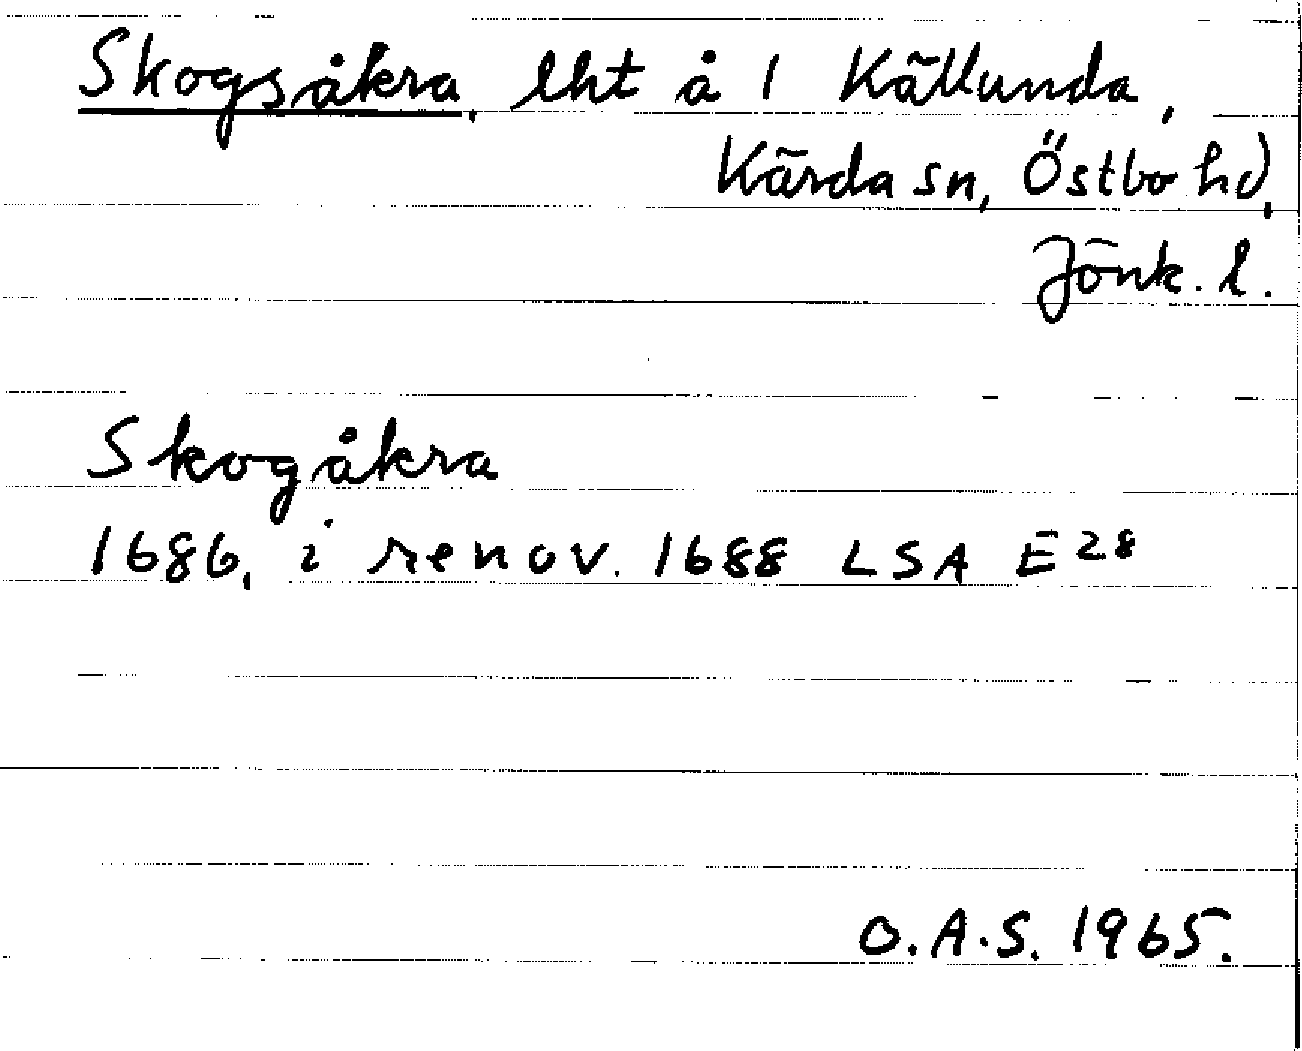 Skogsåkra, lht å 1 Källunda,
Kärda sn, Östbo hd,
Jönk. l.
Skogåkra
1686, i renov. 1688 LSA E 28
O.A.S. 1965.